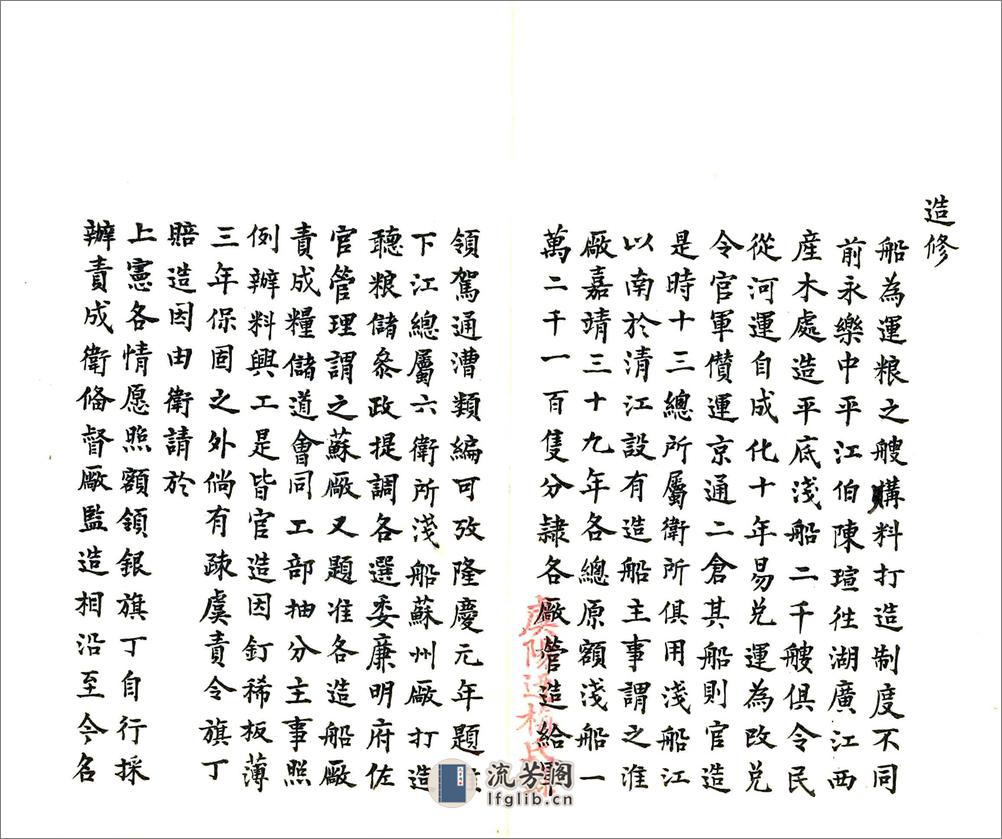 造修
船為運粮之艘購料打造制度不同
前永樂中平江伯陳瑄徃湖廣江西
産木處造平底淺船二千艘俱令民
從河運自成化十年易兌運為改兌
令官軍儹運京通二倉其船則官造
是時十三總所屬衛所俱用淺船江
以南於清江設有造船主事謂之淮
廠嘉靖三十九年各總原額淺船一
萬二千一百隻分隷各廠管造給
領駕通漕類編可攷隆慶元年題
下江總屬六衛所淺船蘇州廠打造
聽粮儲叅政提調各選委廉明府佐
官管理謂之蘇廠又題准各造船廠
責成糧儲道會同工部抽分主事照
例辦料興工是皆官造因釘稀板薄
三年保固之外倘有疎虞責令旗丁
賠造因由衛請於
上憲各情愿照額領銀旗丁自行採
辦責成衛俻督廠監造相沿至今名
流芳閣
lfglib.cn